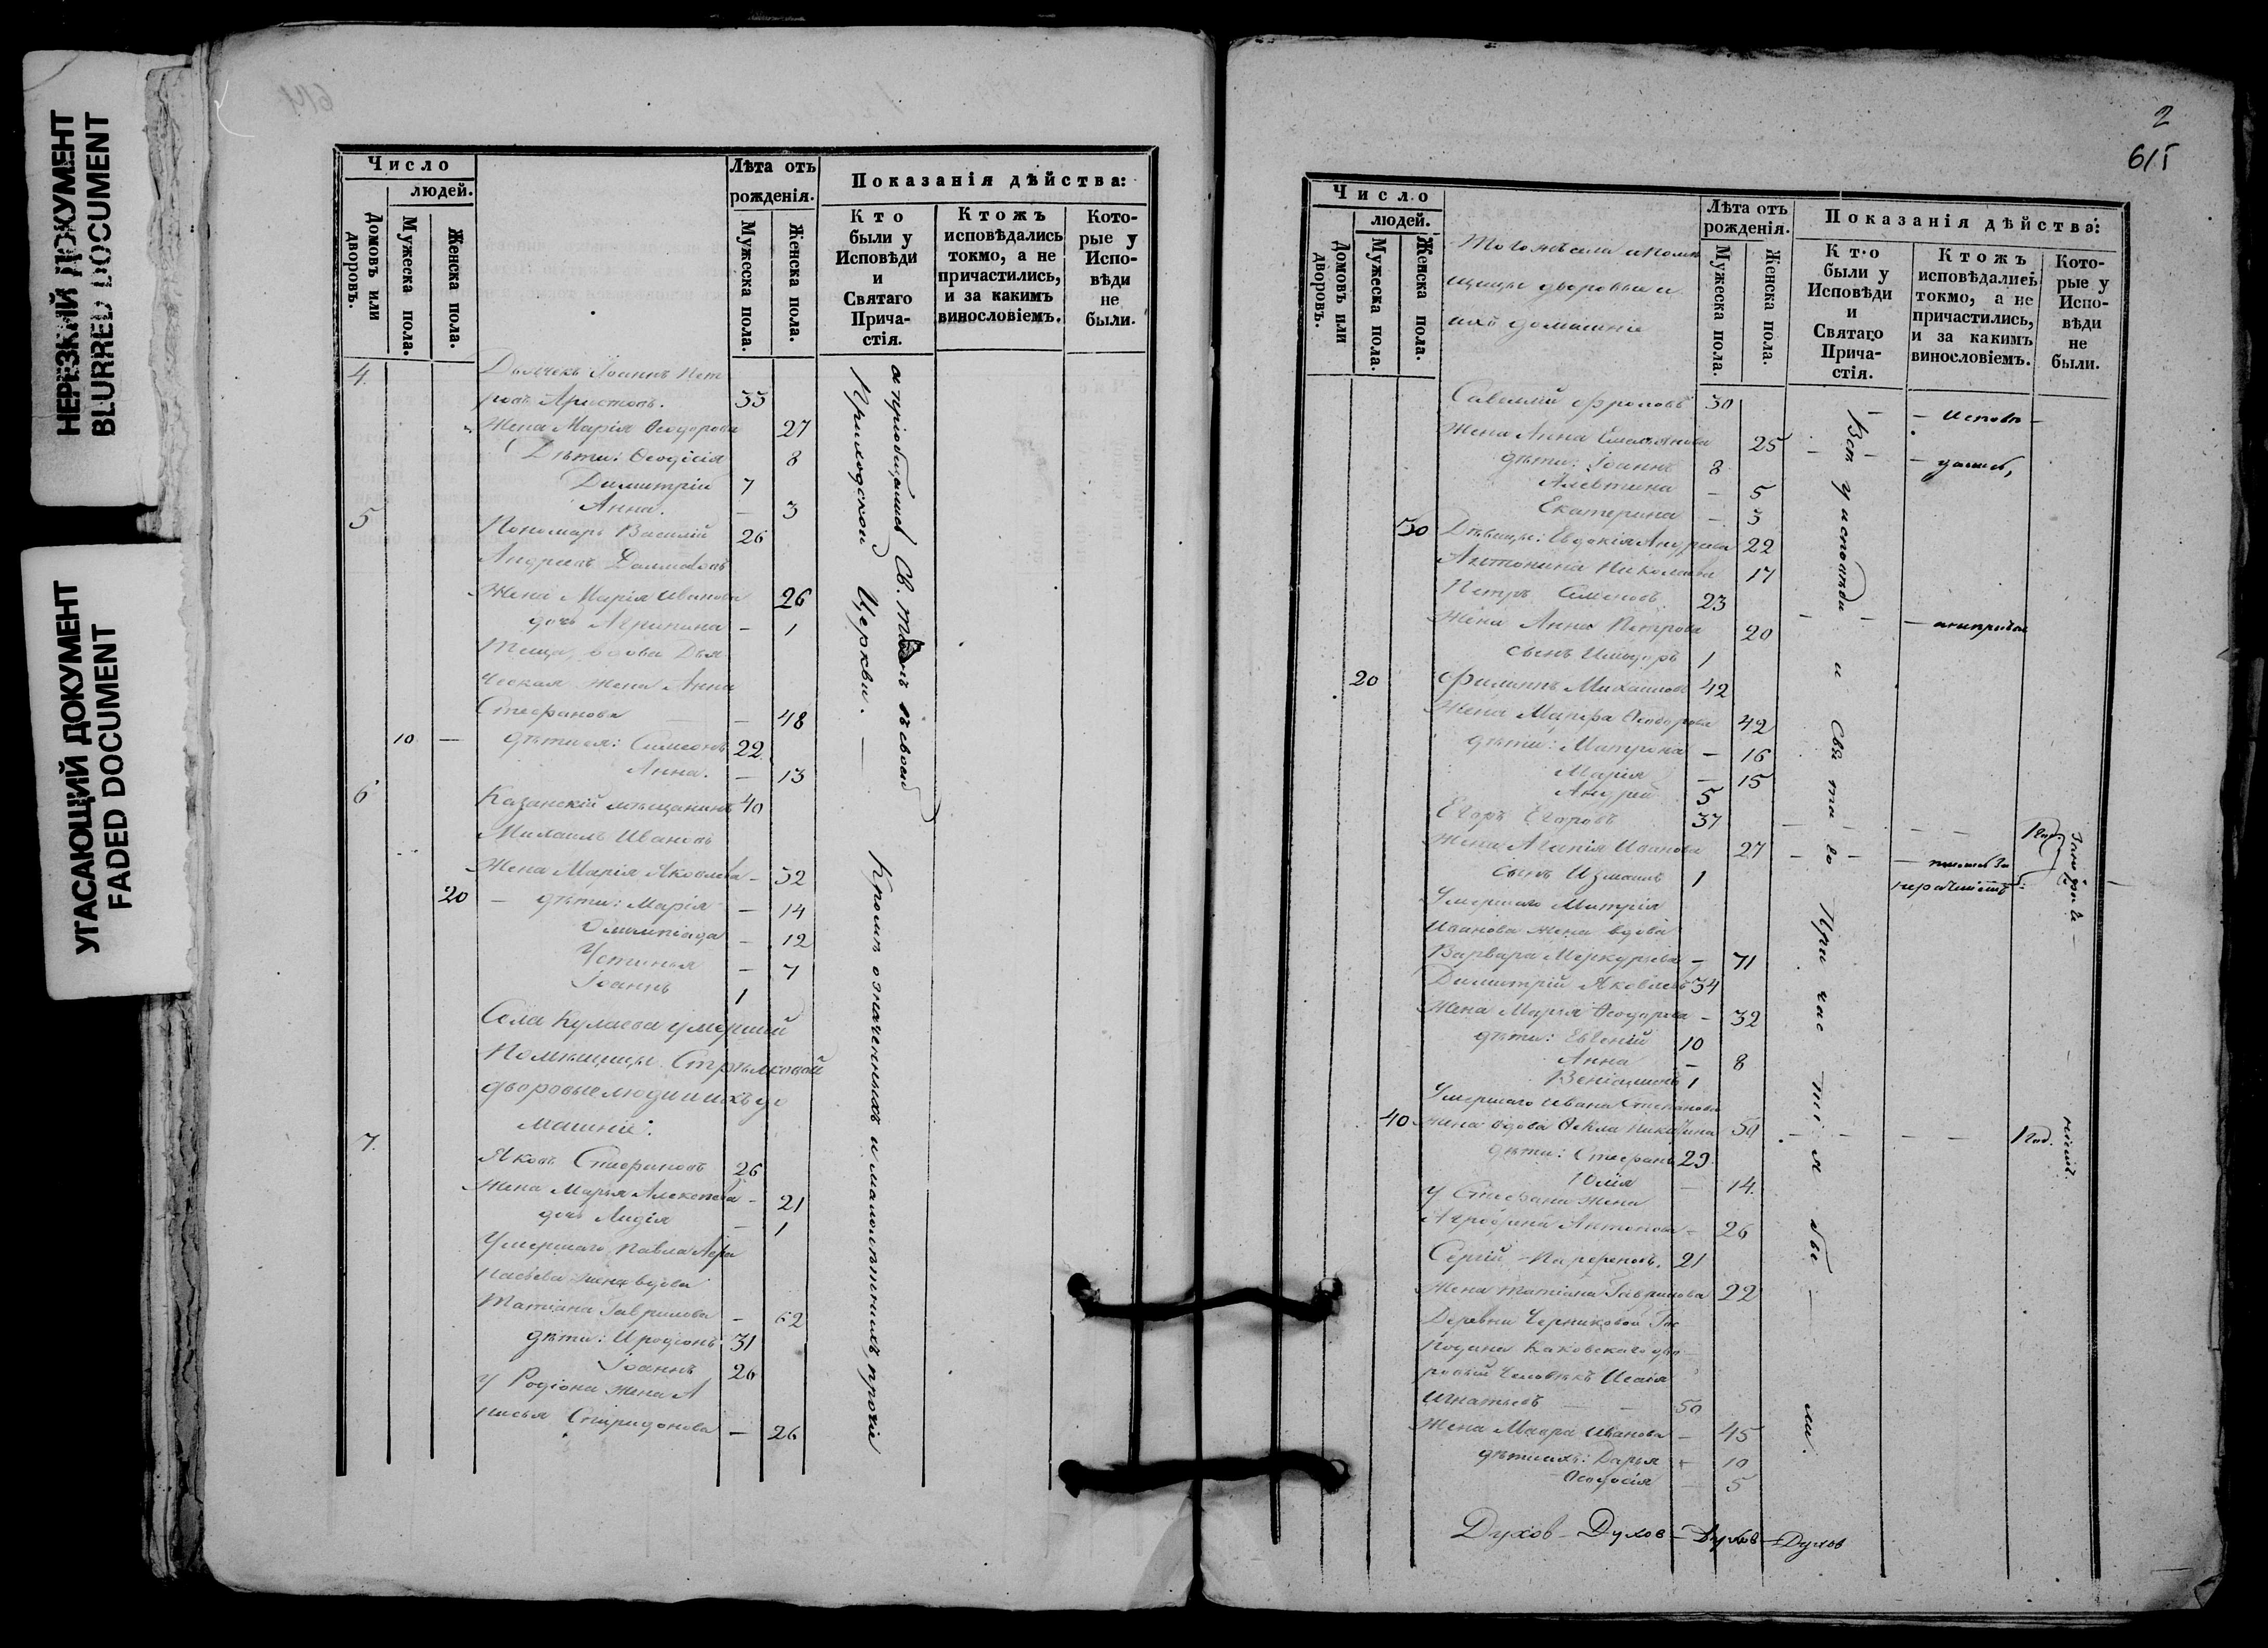 НЕРЕЗКИЙ ДОКУМЕНТ
BLURRED DOCUMENT
УГАСАЮЩИЙ ДОКУМЕНТ
FADED DOCUMENT
Число
людей.
Домовъ или дворовъ.
Мужеска пола.
Женска пола.
Лѣта отъ рожденія.
Мужеска пола.
Женска пола.
Показанія дѣйства:
Кто были у Исповѣди и Святаго Причастія.
Ктожъ исповѣдались токмо, а не причастились, и за какимъ винословіемъ.
Которые у Исповѣди не были.
4. Дьячекъ Іоаннъ Пет
ровъ Аристовъ. 33
Жена Марія Ѳеодорова 27
Дѣти: Ѳеодосія 8
Димитрій 7
Анна. — 3
5 Пономарь Василій 26
Андреевъ
Жена Марія Иванова 26
дочь Агрипина — 1
Теща, вдова Дья
ческая жена Анна
Стефанова — 48
10 — дѣти ея: Симеонъ 22
Анна. — 13
6 Казанскій мѣщанинъ 40
Михаилъ Ивановъ
Жена Марія Яковлева — 32
20 — дѣти: Марія — 14
Олимпіада — 12
Устинья — 7
Іоаннъ 1
Села Кулаева умершей
Помѣщицы Стрѣлковой
дворовые люди и ихъ до
машніе.
7. Яковъ Стефановъ 26
Жена Марья Алексѣева — 21
дочь Лидія — 1
Умершаго Павла Афа
насьева жена вдова
Татіана Гаврилова — 62
дѣти: Иродіонъ 31
Іоаннъ 26
У Родіона жена А
нисья Спиридонова — 26
Кромѣ означенныхъ и малолѣтнихъ, прочіе
Приходской Церкви. —
2
615
Число
людей.
Домовъ или дворовъ.
Мужеска пола.
Женска пола.
Тогожъ села и помѣ
щицы дворовые и
ихъ домашніе
Лѣта отъ рожденія.
Мужеска пола.
Женска пола.
Показанія дѣйства:
Кто были у Исповѣди и Святаго Причастія.
Ктожъ исповѣдались токмо, а не причастились, и за какимъ винословіемъ.
Которые у Исповѣди не были.
Савелій Фроловъ 30
Жена Анна Емельянова 25
дѣти: Іоаннъ 8
Алевтина — 5
Екатерина — 3
30 Дѣвицы: Евдокія Андреева 22
Антонина Николаева 17
Петръ Семеновъ 23
Жена Анна Петрова 20
сынъ 1
20 Филиппъ Михайловъ 42
Жена Марфа Ѳеодорова 42
дѣти: Матрона — 16
Марія — 15
Андрей 5
Егоръ Егоровъ 37
Жена Агапія Иванова 27
сынъ Измаилъ 1
Умершаго Митрія
Иванова жена вдова
Варвара Меркурьева — 71
Димитрій Яковлевъ 34
Жена Марья Ѳеодорова — 32
дѣти: Евгеній 10
Анна — 8
Веніаминъ 1
Умершаго Ивана Степанова
40 жена вдова Ѳекла 59
дѣти: Стефанъ 29
Юлія — 14
у Стефана жена
Агрофена Антонова — 26
Сергій 21
Жена Татіана Гаврилова 22
Деревни Черниковой Гос
подина Каковскаго дво
ровый человѣкъ Исаія
Игнатьевъ — — 50
Жена Мавра Иванова — 45
дѣти ихъ: Дарья — 10
Ѳеодосія — 5
Всѣ у исповѣди и Святаго Причастія были.
— Исповѣ —
— дались,
Духов — Духов — Духов — Духов